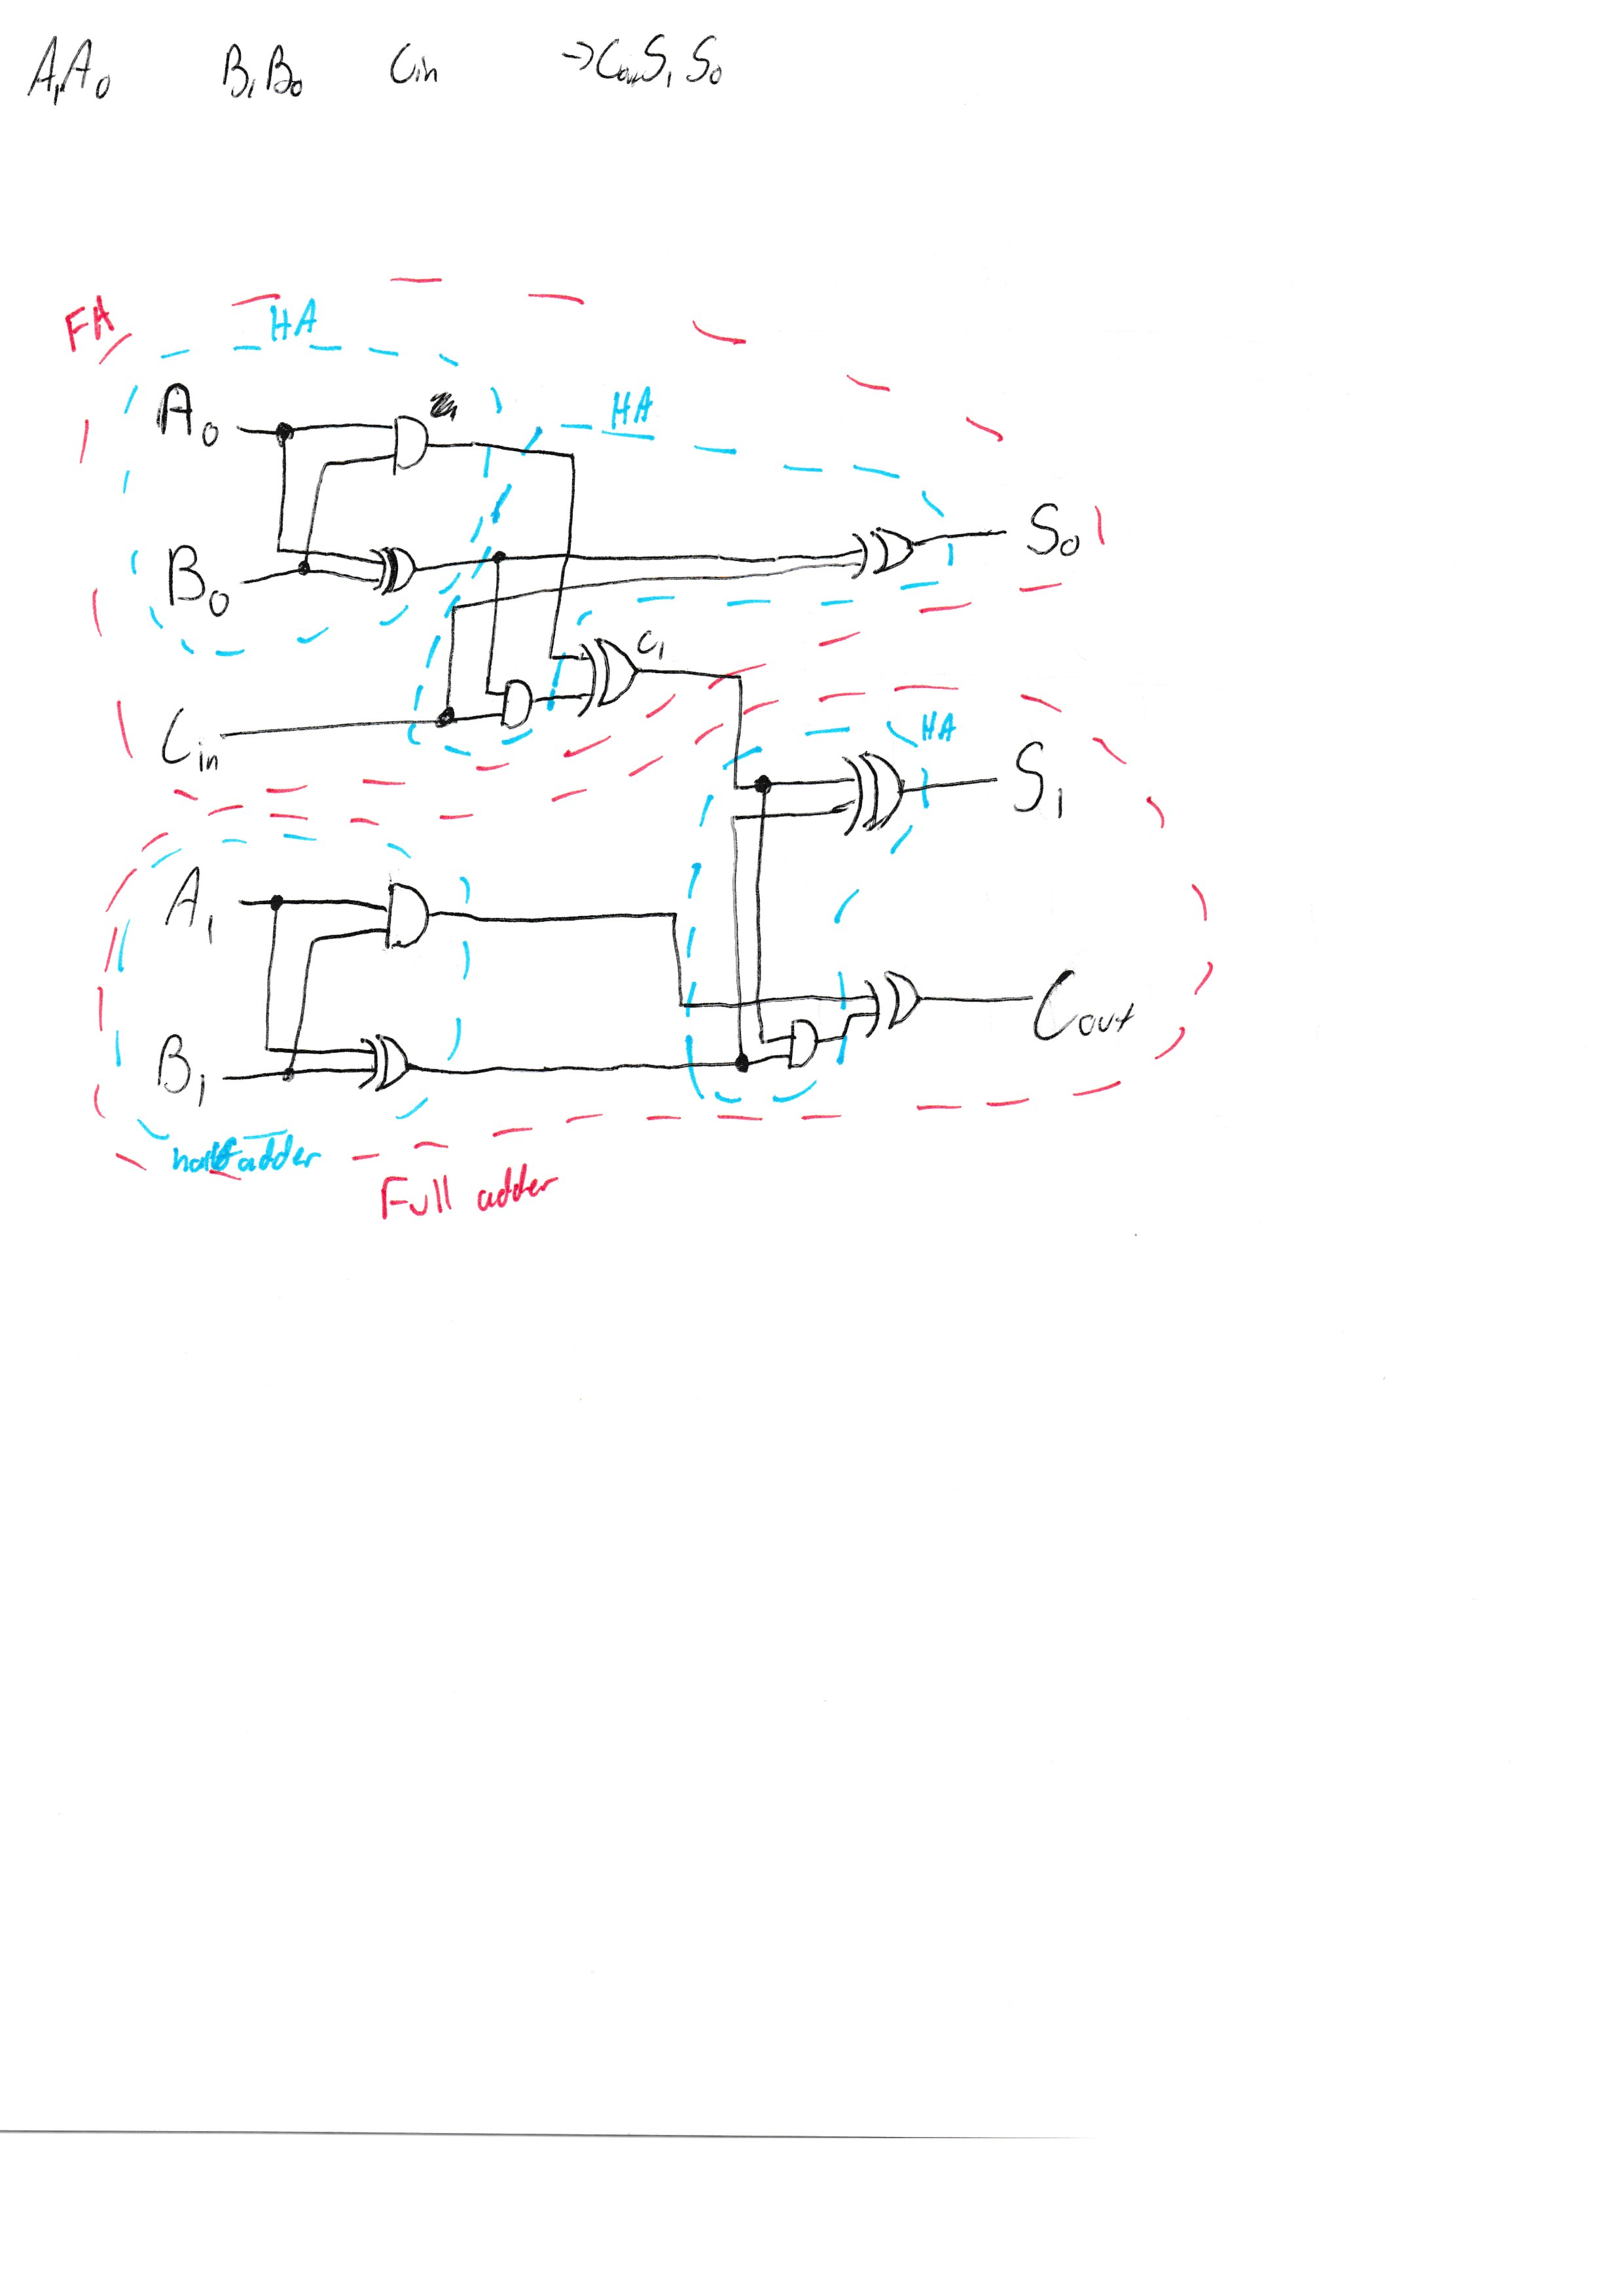 A₁A₀ B₁B₀ Cin →CoutS₁S₀
FA HA
A₀
HA
S₀
B₀
C₁
Cin
HA
S₁
A₁
Cout
B₁
half adder
Full adder